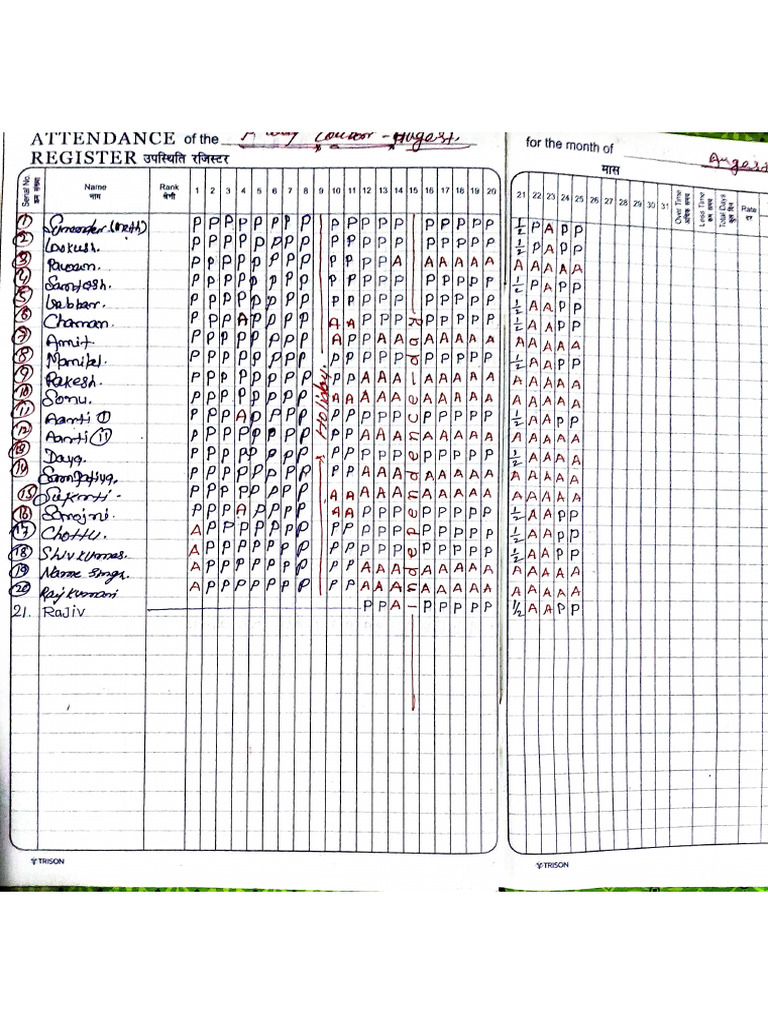 ATTENDANCE of the Labour - August.
REGISTER उपस्थिति रजिस्टर
for the month of August
मास
Serial No. क्रम संख्या Name नाम Rank श्रेणी 1 2 3 4 5 6 7 8 9 10 11 12 13 14 15 16 17 18 19 20 21 22 23 24 25 26 27 28 29 30 31 Over Time अधिक समय Less Time कम समय Total Days कुल दिन Rate दर
1 (Meth) P P P P P P P P P P P P P P P P P P 1/2 P A P P
2 Lovkush. P P P P P P P P P P P P P P P P P P 1/2 P A P P
3 P P P P P P P P P P P P A A A A A A A A A A A
4 Santosh. P P P P P P P P P P P P P P P P P P 1/2 P A P P
5 P P P P P P P P P P P P P P P P P P 1/2 A A P P
6 Chaman. P P P A P P P P A A P P P P P P P P 1/2 A A P P
7 Amit P P P P P P P P A P P A A A A A A A A A A A A
8 P P P P P P P P P P P P P P P P P P 1/2 A A P P
9 Rakesh. P P P P P P P P P P A A A A A A A A A A A A A
10 Sonu. P P P P P P P P A A A A A A A A A A A A A A A
11 Aarti I P P P A P P P P P P P P P P P P P P 1/2 A A P P
12 Aarti 11 P P P P P P P P P P A A A A A A A A A A A A A
13 Daya. P P P P P P P P P P P P P P P P P P 1/2 A A A A
14 P P P P P P P P P P A A A A A A A A A A A A A
15 P P P P P P P P A A A A A A A A A A A A A A A
16 Sarojni. P P P A P P P P A A P P P P P P P P 1/2 A A P P
17 Chottu. A P P P P P P P P P P P P P P P P P 1/2 A A P P
18 Shiv Kumar. A P P P P P P P P P P P P P P P P P 1/2 A A P P
19 A P P P P P P P P P A A A A A A A A A A A A A
20 Raj Kumari A P P P P P P P P P A A A A A A A A A A A A A
21. Rajiv P P A P P P P P 1/2 A A P P
Holiday.
Independence-day
TRISON
TRISON